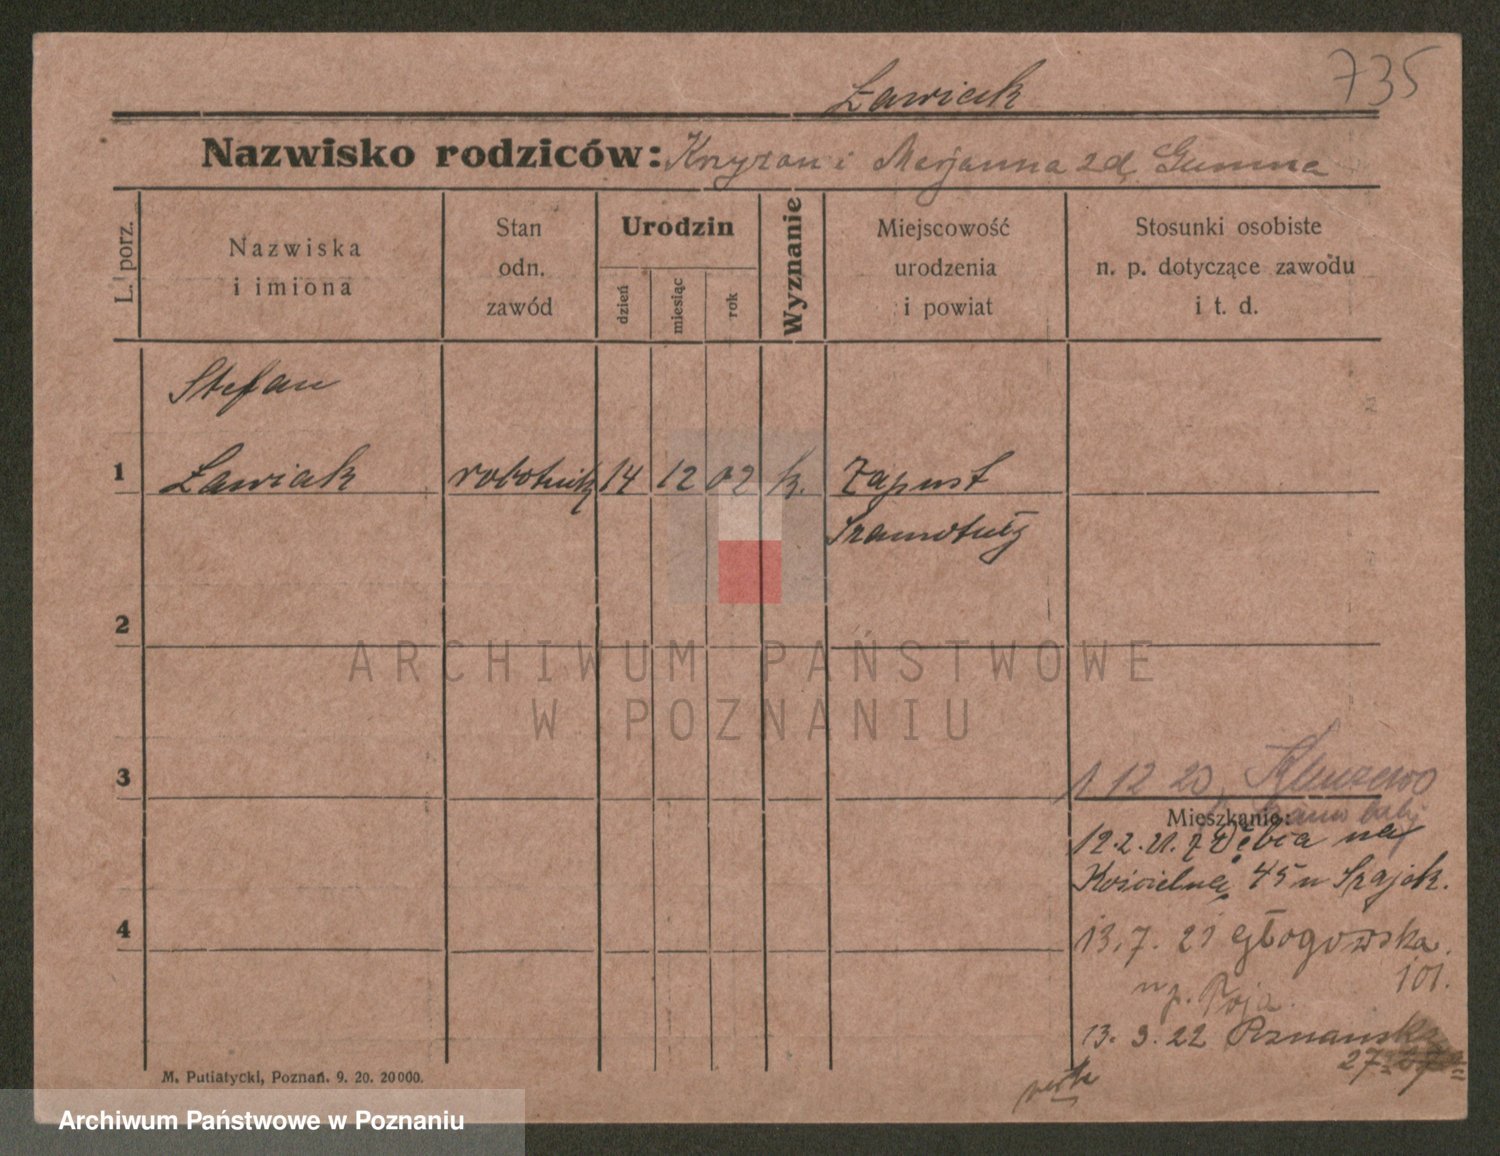 735
Ławiak
Nazwisko rodziców: Krzyzan i Marjanna zd. Gumna
L. porz.
Nazwiska
i imiona
Stan
odn.
zawód
Urodzin
dzień
miesiąc
rok
Wyznanie
Miejscowość
urodzenia
i powiat
Stosunki osobiste
n. p. dotyczące zawodu
i t. d.
Stefan
1 Ławiak robotnik 14 12 02 k. Zapust
Szamotuły
2
ARCHIWUM PAŃSTWOWE
W POZNANIU
3
1 12 20
Mieszkanie:
12.2.21. z Dębca na
Kościelnej 45 u Szajek.
4
13.7.21 Głogowska
101.
u p. Roja.
13.9.22 Poznańska
27
M. Putiatycki, Poznań. 9. 20. 20000.
Archiwum Państwowe w Poznaniu